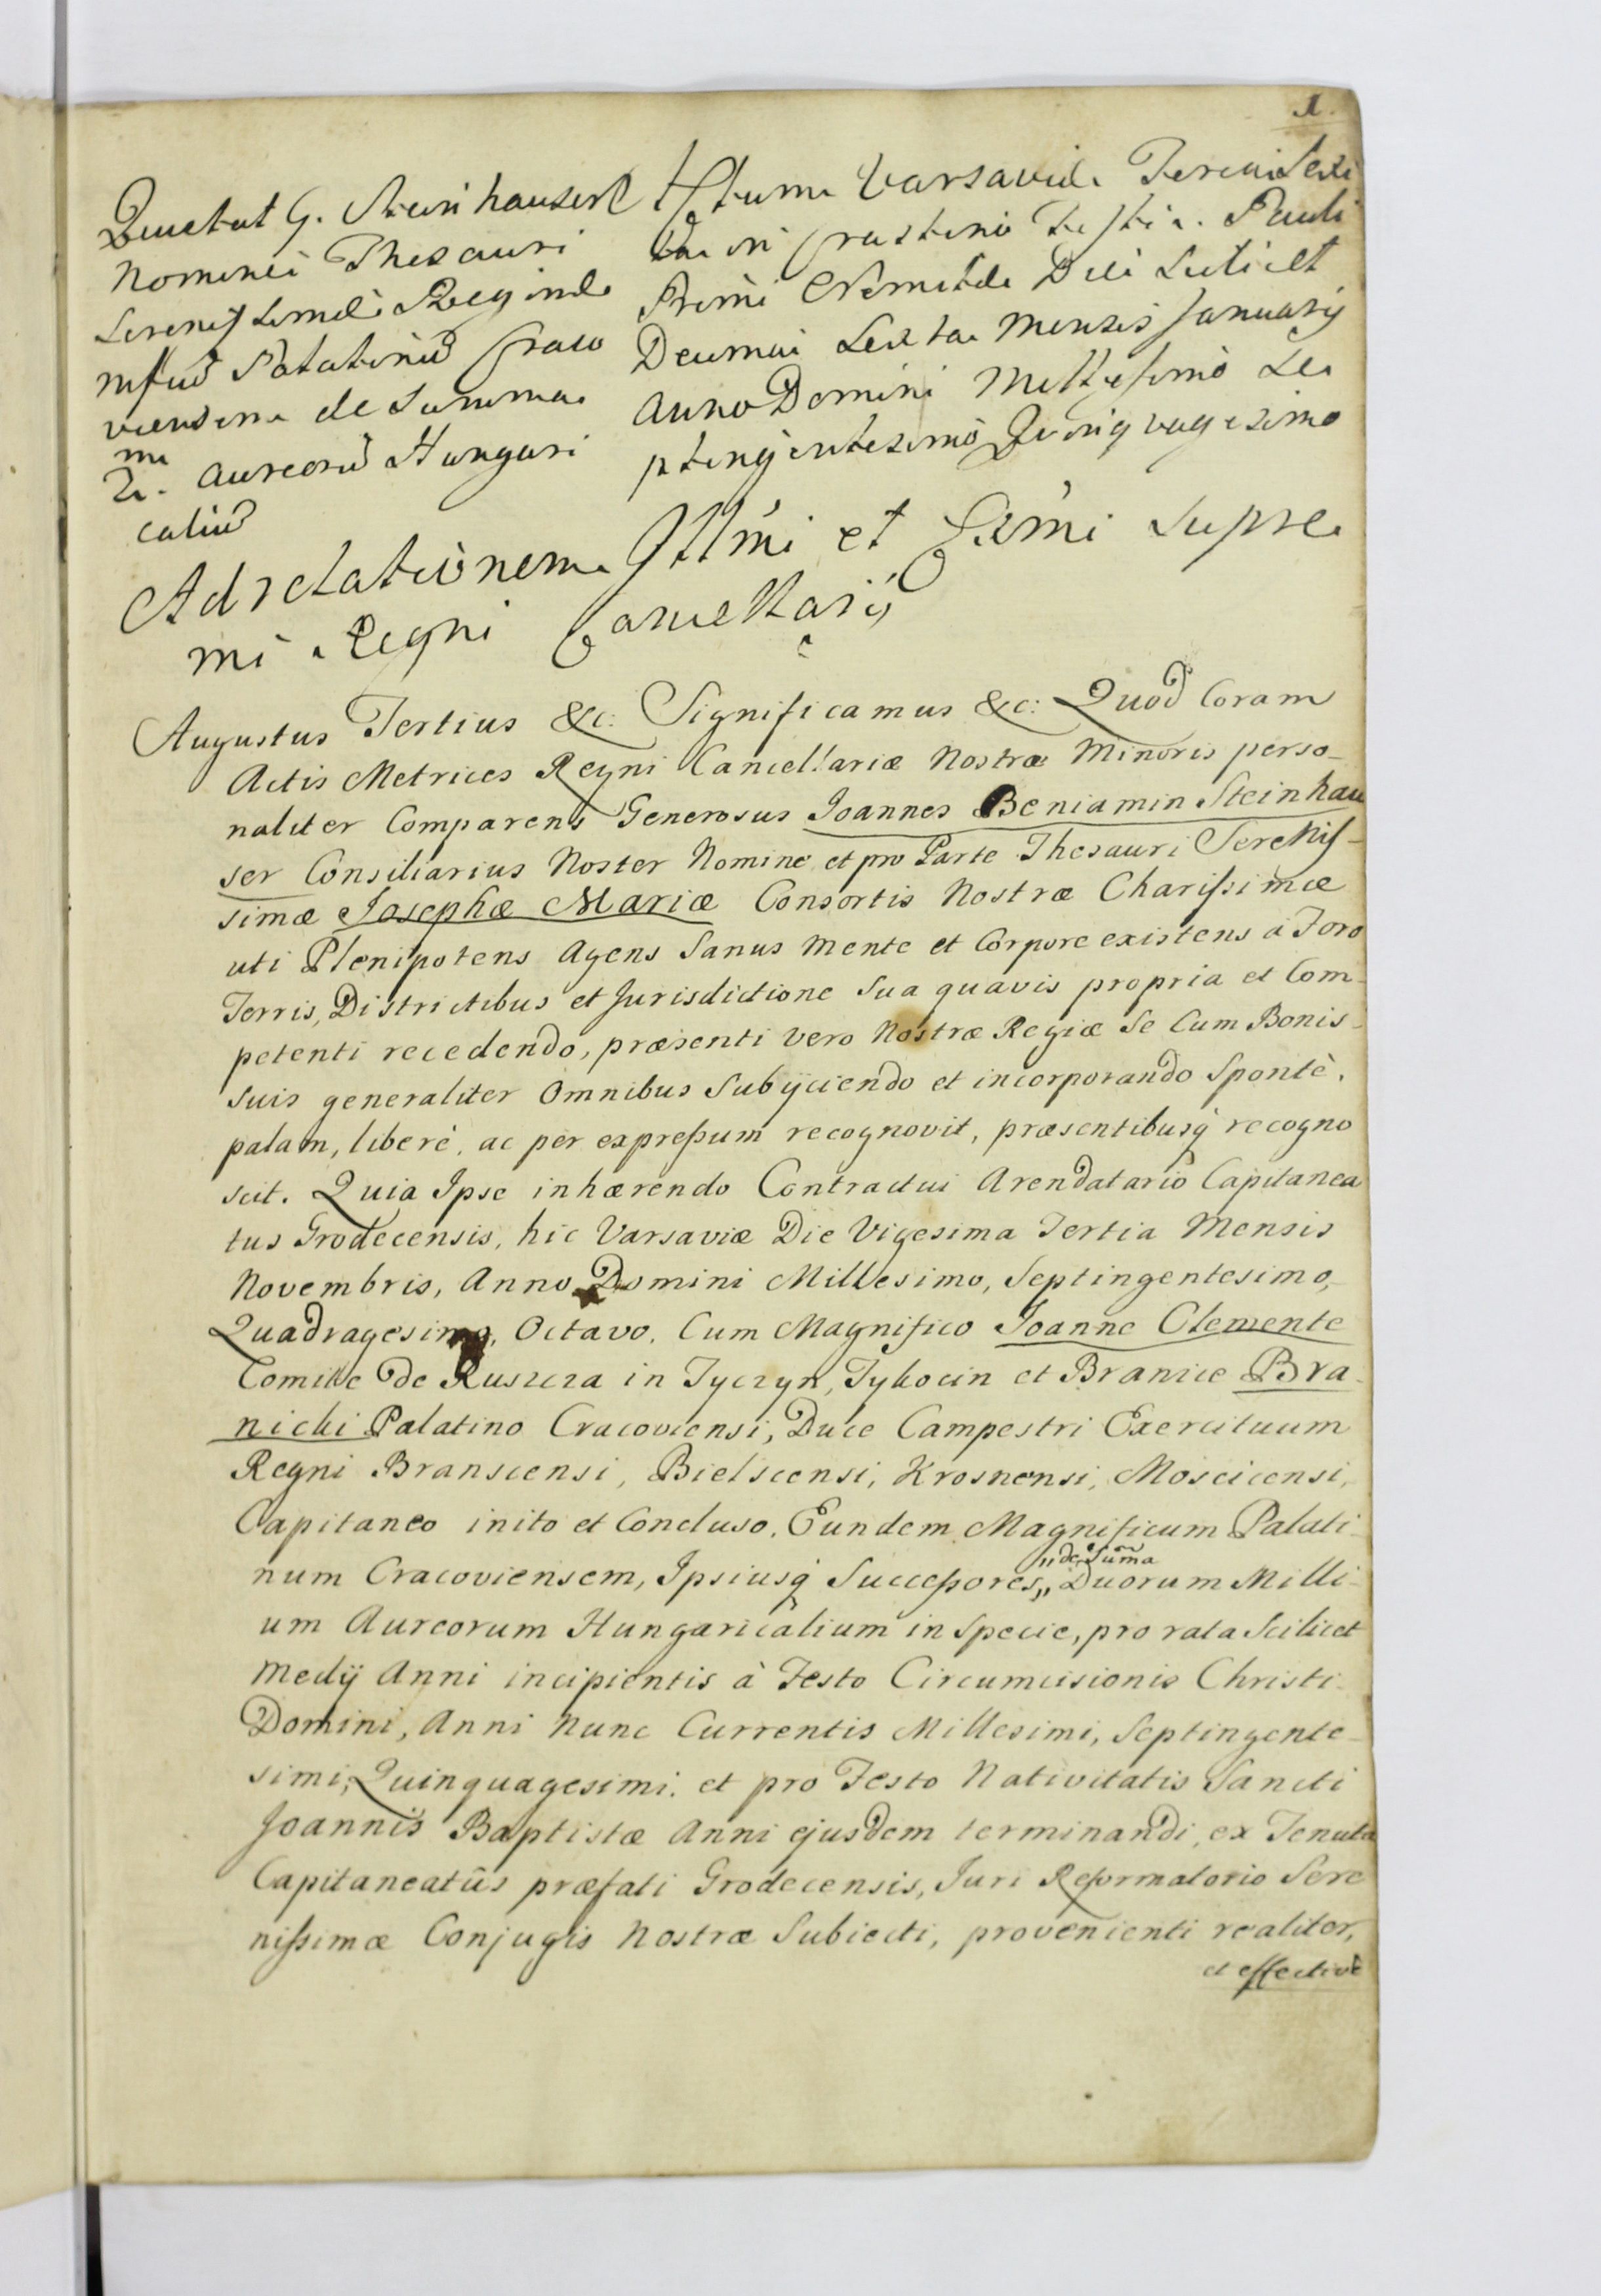 1.
Quietat G. Steinhauser
Nomine Thesauri
Serenissimæ Reginæ
mfcũ Palatinũ Craco
viensem de Summa
2.
m
 Aureorũ Hungari
caliũ
Actum Varsaviæ Feria Sexta
in Crastino Festi S. Pauli
Primi Eremitæ Die Scilicet
Decima Sexta Mensis Januarij
Anno Domini Millesimo Se
ptingentesimo Quinquagesimo
Ad relationem Illmi et Exmi Supre
mi Regni Cancellarij
Augustus Tertius &c: Significamus &c: Quod Coram
Actis Metrices Regni Cancellariæ Nostræ Minoris perso-
naliter Comparens Generosus Joannes Beniamin Steinhau
ser Consiliarius Noster Nomine et pro Parte Thesauri Sereniſ-
simæ Josephæ Mariæ Consortis Nostræ Chariſsimæ
uti Plenipotens Agens Sanus mente et Corpore existens à Foro
Terris, Districtibus et Jurisdictione Sua quavis propria et Com-
petenti recedendo, præsenti vero Nostræ Regiæ Se Cum Bonis
suis generaliter Omnibus Subijciendo et incorporando Spontè,
palam, liberè, ac per expreſsum recognovit, præsentibusq́ recogno
scit. Quia Ipse inhærendo Contractui Arendatario Capitanea
tus Grodecensis, hic Varsaviæ Die Vigesima Tertia Mensis
Novembris, Anno Domini Millesimo, Septingentesimo,
Quadragesimo, Octavo, Cum Magnifico Joanne Clemente
Comite De Ruszcza in Tyczyn, Tykocin et Branice Bra-
nicki Palatino Cracoviensi, Duce Campestri Exercituum
Regni Branscensi, Bielscensi, Krosnensi, Moscicensi,
Capitaneo inito et Concluso, Eundem Magnificum Palati-
num Cracoviensem, Ipsiusq́ Succeſsores,, ,,de Sum̃a Duorum Milli-
um Aureorum Hungaricalium in Specie, pro rata Scilicet
Medij Anni incipientis à Festo Circumcisionis Christi
Domini, Anni Nunc Currentis Millesimi, Septingente-
simi, Quinquagesimi, et pro Festo Nativitatis Sancti
Joannis Baptistæ Anni ejusdem terminandi, ex Tenuta
Capitaneatûs præfati Grodecensis, Juri Reformatorio Sere
niſsimæ Conjugis Nostræ Subiecti, provenienti realiter,
et effectivè